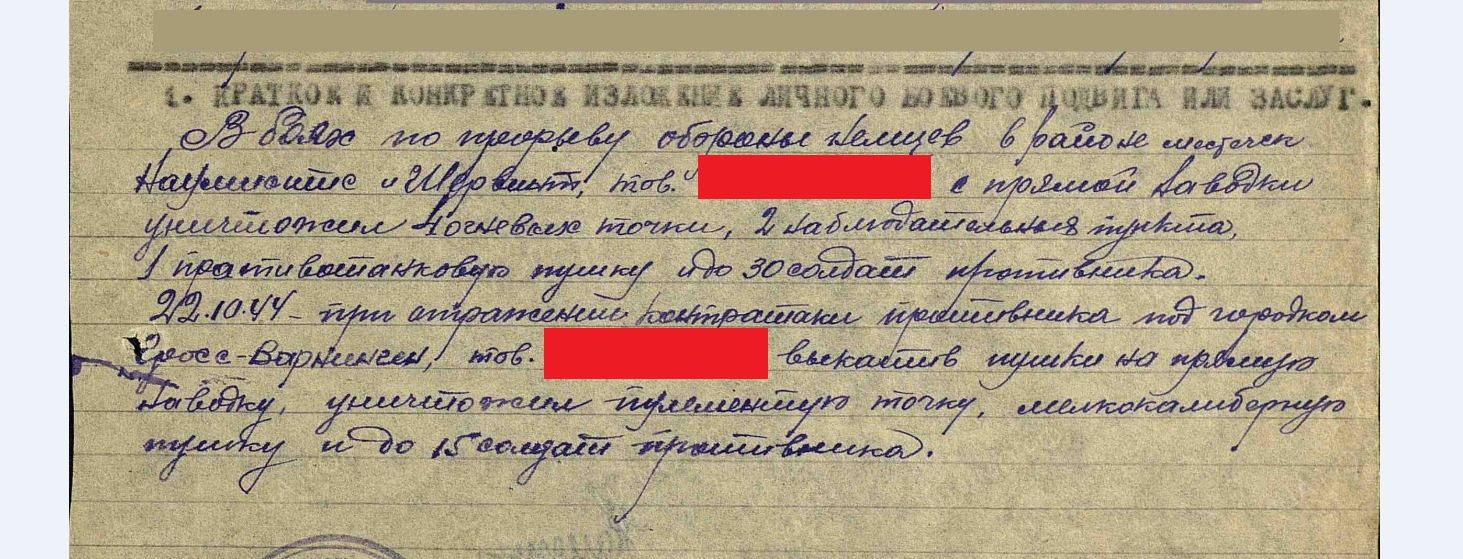 1. КРАТКОЕ И КОНКРЕТНОЕ ИЗЛОЖЕНИЕ ЛИЧНОГО БОЕВОГО ПОДВИГА ИЛИ ЗАСЛУГ.
В боях по прорыву обороны немцев в районе местечек
Наумиестис и Ширвинт, тов. с прямой наводки
уничтожил 4 огневых точки, 2 наблюдательных пункта,
1 противотанковую пушку и до 30 солдат противника.
22.10.44 - при отражении контратаки противника под городком
Гросс-Варнинген, тов. выкатив пушки на прямую
наводку, уничтожил пулеметную точку, мелкокалиберную
пушку и до 15 солдат противника.